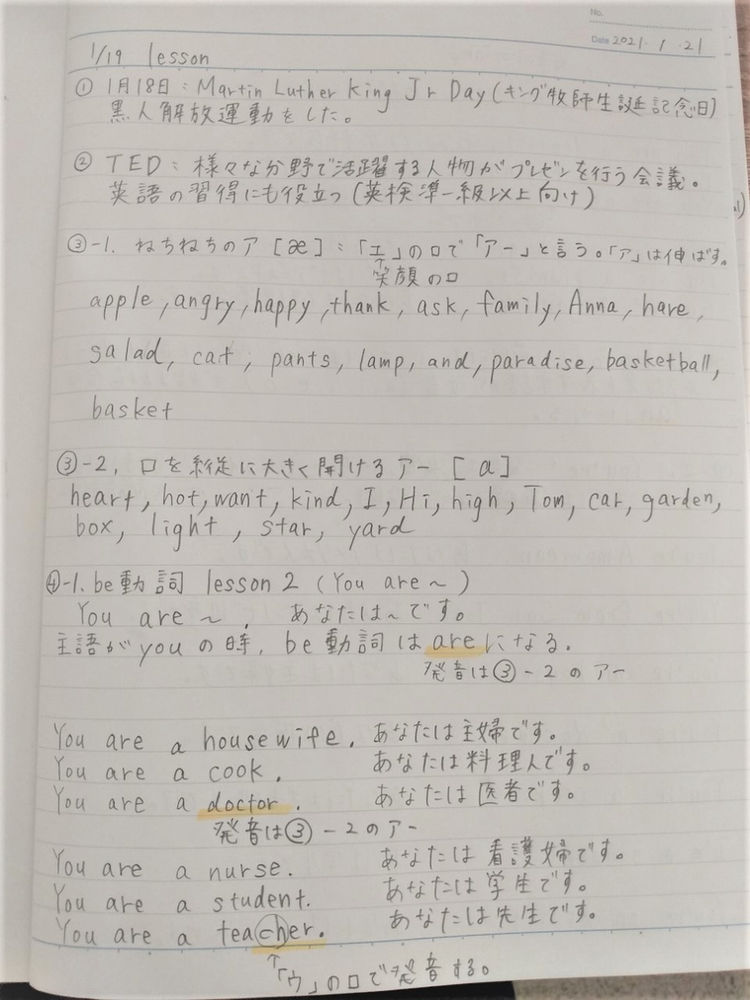 No.
Date 2021. 1 .21
1/19 lesson
① 1月18日: Martin Luther King Jr Day (キング牧師生誕記念日)
黒人解放運動をした。
② TED: 様々な分野で活躍する人物がプレゼンを行う会議。
英語の習得にも役立つ(英検準一級以上向け)
③-1. ねちねちのア [æ]:「エ」の口で「アー」と言う。「ア」は伸ばす。
↑
笑顔の口
apple, angry, happy, thank, ask, family, Anna, have,
salad, cat, pants, lamp, and, paradise, basketball,
basket
③-2, 口を縦に大きく開けるアー [a]
heart, hot, want, kind, I, Hi, high, Tom, car, garden,
box, light, star, yard
④-1. be動詞 lesson 2 (You are ~)
You are ~. あなたは~です。
主語がyouの時, be動詞はareになる.
発音は③-2のアー
You are a housewife. あなたは主婦です。
You are a cook. あなたは料理人です。
You are a doctor. あなたは医者です。
発音は③-2のアー
You are a nurse. あなたは看護婦です。
You are a student. あなたは学生です。
You are a teacher. あなたは先生です。
↑
「ウ」の口で発音する。